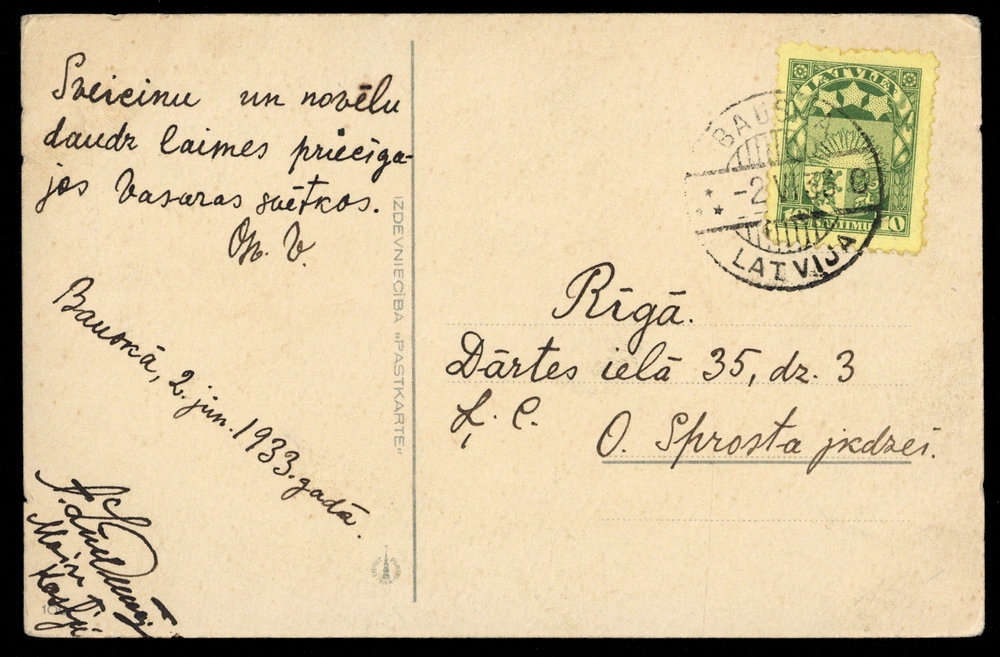 Sveicinu un novēlu
daudz laimes priecīga-
jos Vasaras svētkos.
Bauskā, 2. jūn. 1933. gadā.
IZDEVNIECĪBA „PASTKARTE"
LATVIJA
LATVIJA
Rīgā.
Dārtes ielā 35, dz. 3
Ļ. C.
O. Sprosta jkdzei.